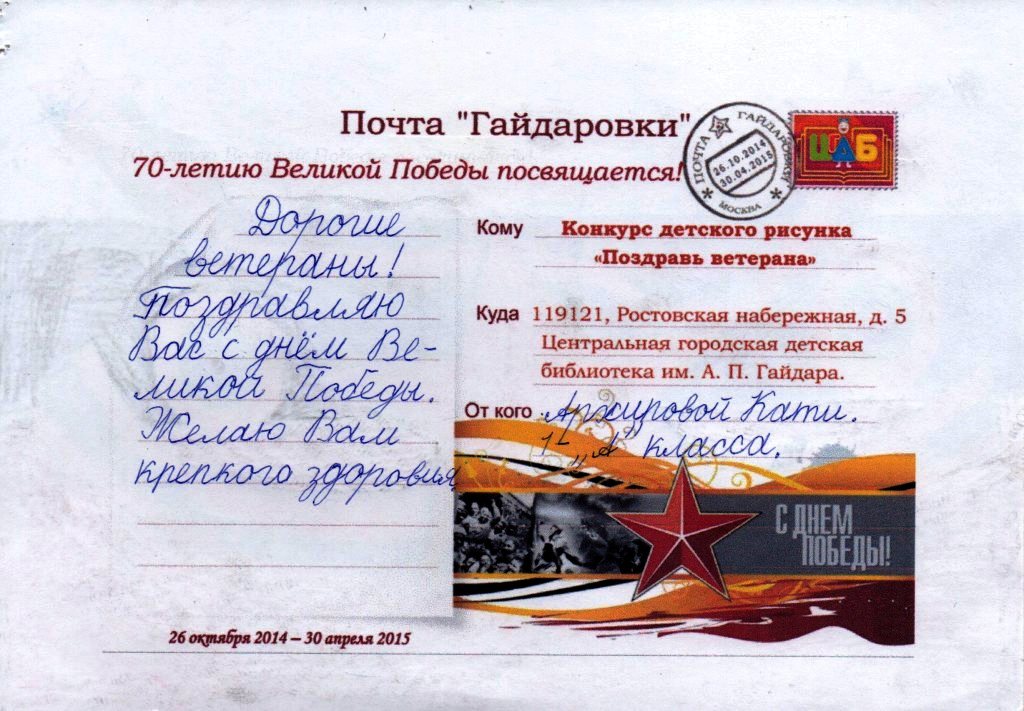 Почта "Гайдаровки"
70-летию Великой Победы посвящается!
ПОЧТА ГАЙДАРОВКИ
26.10.2014
30.04.2015
МОСКВА
ЦДБ
Дорогие
ветераны!
Поздравляю
Вас с днём Ве-
ликой Победы.
Желаю Вам
крепкого здоровия
26 октября 2014 – 30 апреля 2015
Кому Конкурс детского рисунка
«Поздравь ветерана»
Куда 119121, Ростовская набережная, д. 5
Центральная городская детская
библиотека им. А. П. Гайдара.
От кого Кати.
1 „А" класса.
С ДНЕМ
ПОБЕДЫ!